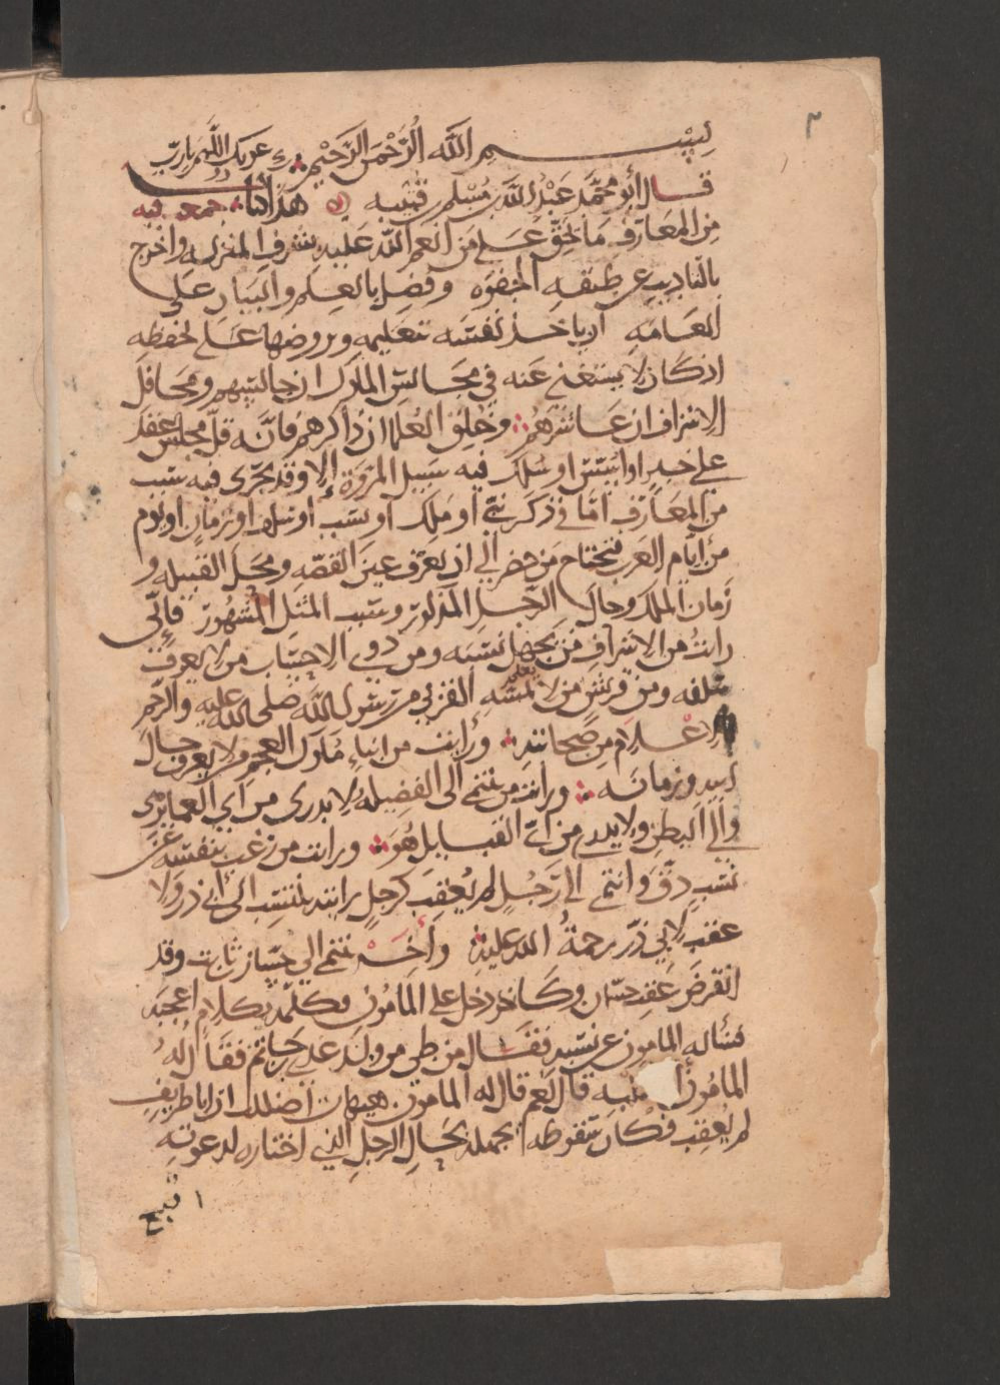 ٢
بسم الله الرحمن الرحيم عونك اللهم يا رب
قال أبو محمد عبد الله بن مسلم بن قتيبة هذا كتاب جمعت فيه
من المعارف ما يحق على من أنعم الله عليه بشرف المنزلة وأخرج
بالتأديب عن طبقة الحشوة وفضل بالعلم والبيان على
العامة أن يأخذ نفسه بتعليمه ويروضها على تحفظه
اذ كان لا يستغنى عنه في مجالس الملوك ان جالسهم ومحافل
الاشراف ان عاشرهم وحلق العلما ان ذاكرهم فانه قل مجلس عقد
على خير او اسس او سلك فيه سبيل المروة إلا وقد يجرى فيه سبب
من المعارف اما في ذكر نبي أو ملك او نسب أو سلف او زمان او يوم
من أيام العرب فيحتاج من حضر الى ان يعرف عين القصه ومحل القبيله و
زمان الملك وحال الرجل المذكور وسبب المثل المشهور فإنى
رايت من الاشراف من يجهل نسبه ومن ذوي الاحساب من لا يعرف
سلفه ومن قريش من لا يعلم من اين تمسه القربى من رسول الله صلى الله عليه والرحم
بالاعلام من صحابته ورأيت من ابناء ملوك العجم من لا يعرف حال
أبيه وزمانه ورايت من ينتمي الى الفصيله لا يدرى من أي العماير هى
والى البطن ولا يدرى من أي القبايل هو ورايت من رغب بنفسه عن
نسب دق وانتمى الى رجل لم يعقب كرجل رايته ينتسب الى أبي ذر ولا
عقب لابي ذر رحمة الله عليه وآخر ينتمي الى حسان بن ثابت وقد
انقرض عقب حسان وكآخر دخل على المامون فكلمه بكلام اعجبه
فسأله المامون عن نسبه فقال من طي من ولد عدي بن حاتم فقال له
المامون قال نعم قال له المامون هيهات أضللت ان ابا طريف
لم يعقب فكان سقوطه بجهله بحال الرجل الذي اختاره لدعوته
ا قبح